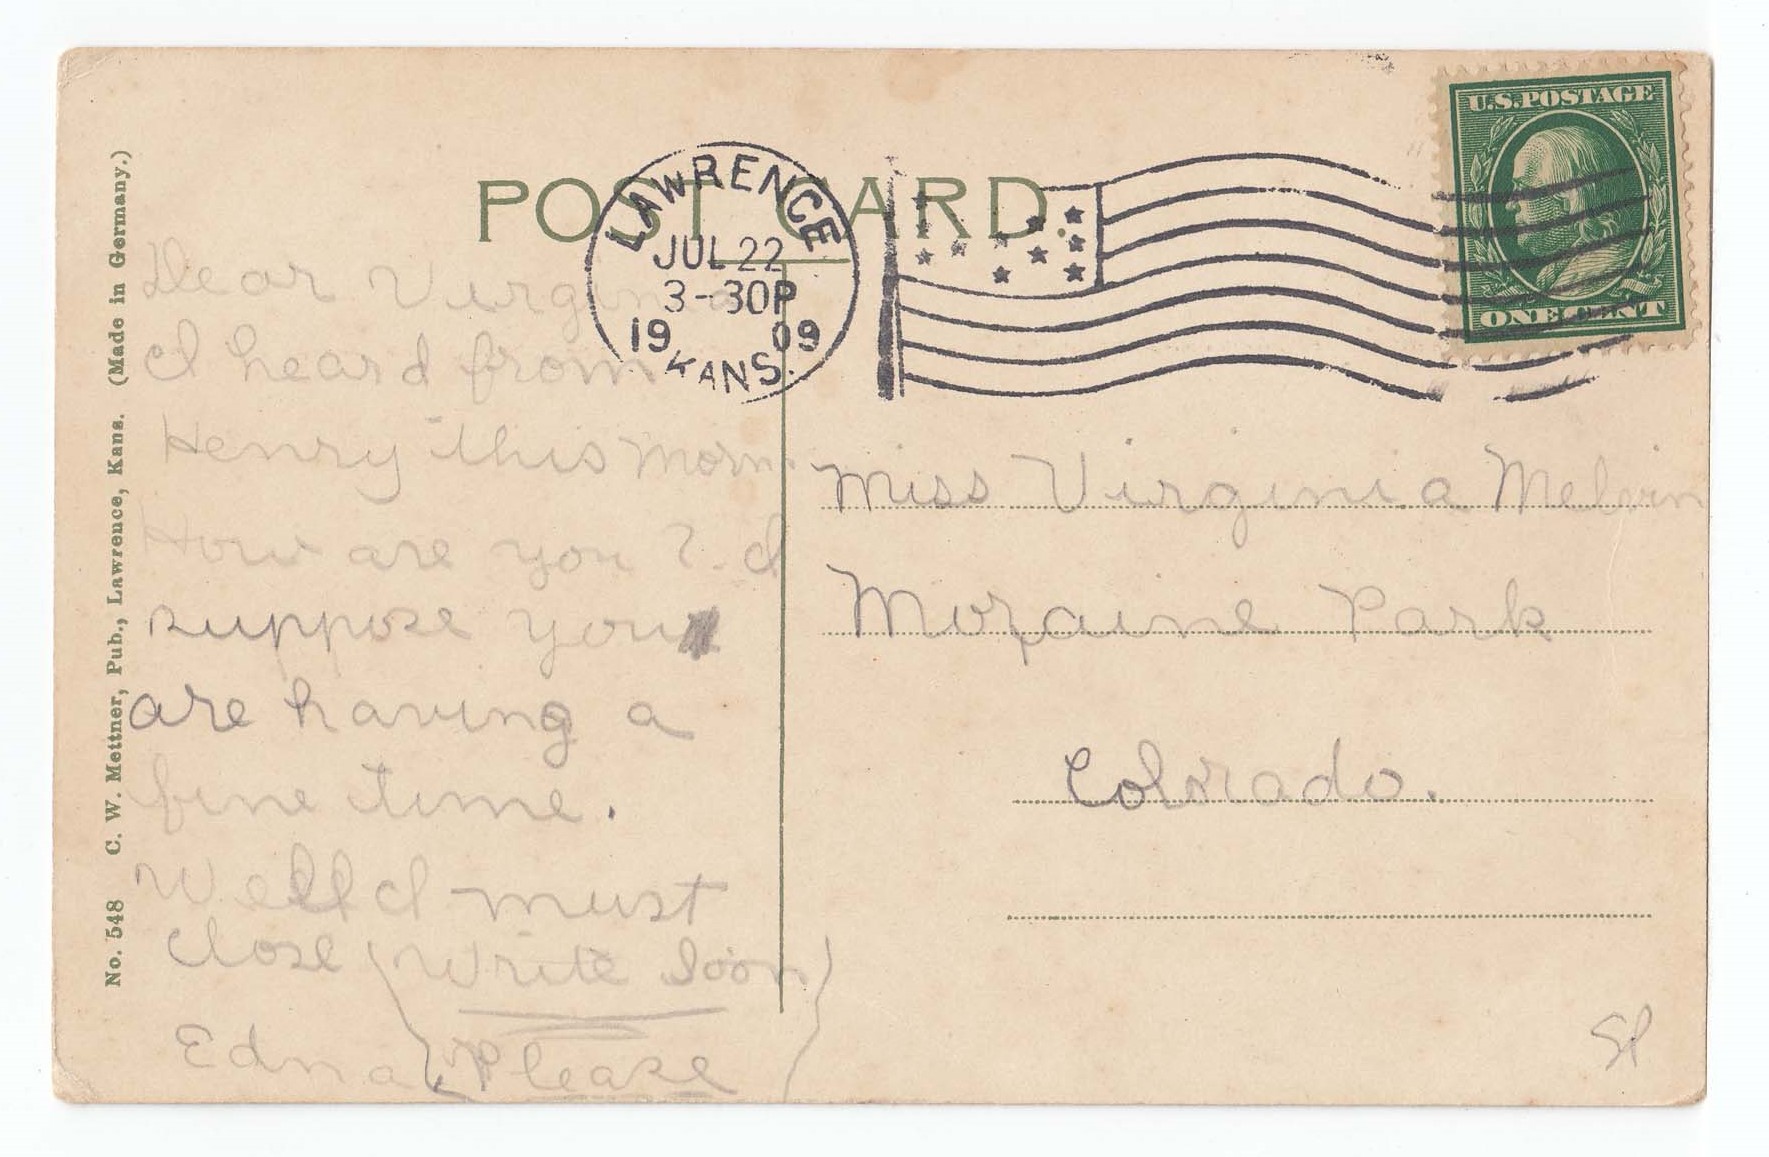 POST CARD.
U.S. POSTAGE
ONE CENT
LAWRENCE
JUL 22
3-30P
1909
KANS.
No. 548 C. W. Mettner, Pub., Lawrence, Kans. (Made in Germany.)
Dear Virginia
I heard from
Henry this morn.
How are you? I
suppose you
are having a
fine time.
Well I must
close (Write Soon
Edna Please)
Miss Virginia Melvin
Moraine Park
Colorado.